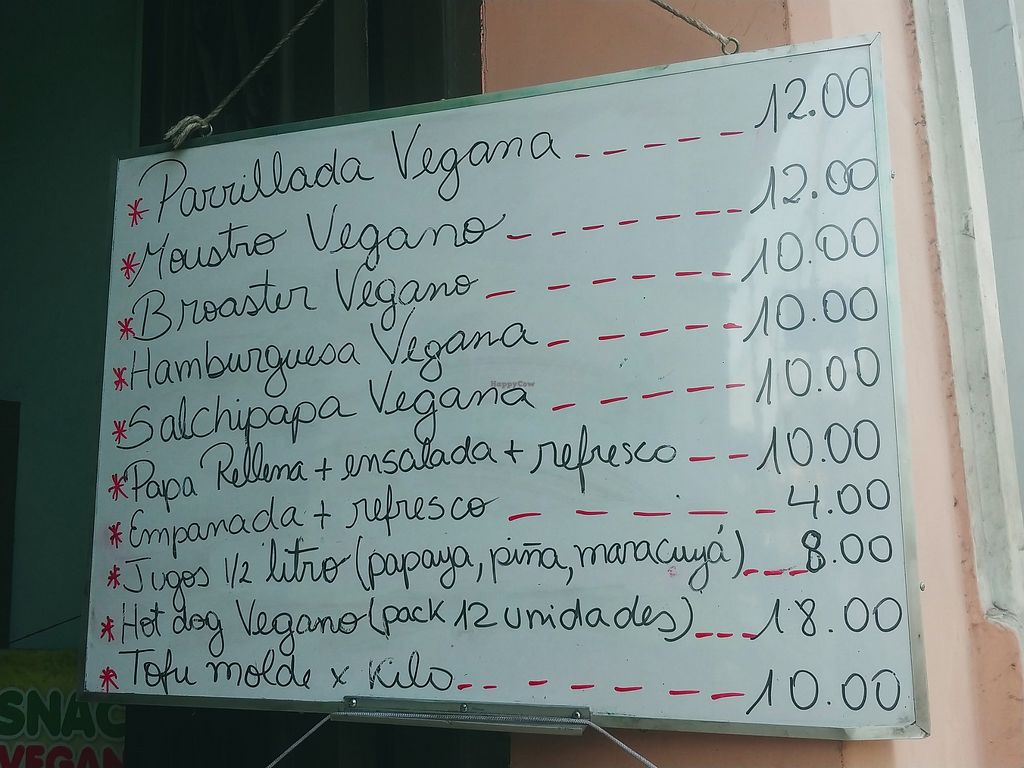 * Parrillada Vegana - - - - - - 12.00
* Moustro Vegano - - - - - - - 12.00
* Broaster Vegano - - - - - - - 10.00
* Hamburguesa Vegana - - - - - 10.00
* Salchipapa Vegana - - - - - 10.00
* Papa Rellena + ensalada + refresco - - 10.00
* Empanada + refresco - - - - - - 4.00
* Jugos 1/2 litro (papaya, piña, maracuyá) - - - 8.00
* Hot dog Vegano (pack 12 unidades) - - - 18.00
* Tofu molde x Kilo - - - - - - - 10.00
HappyCow
SNAC
VEGAN